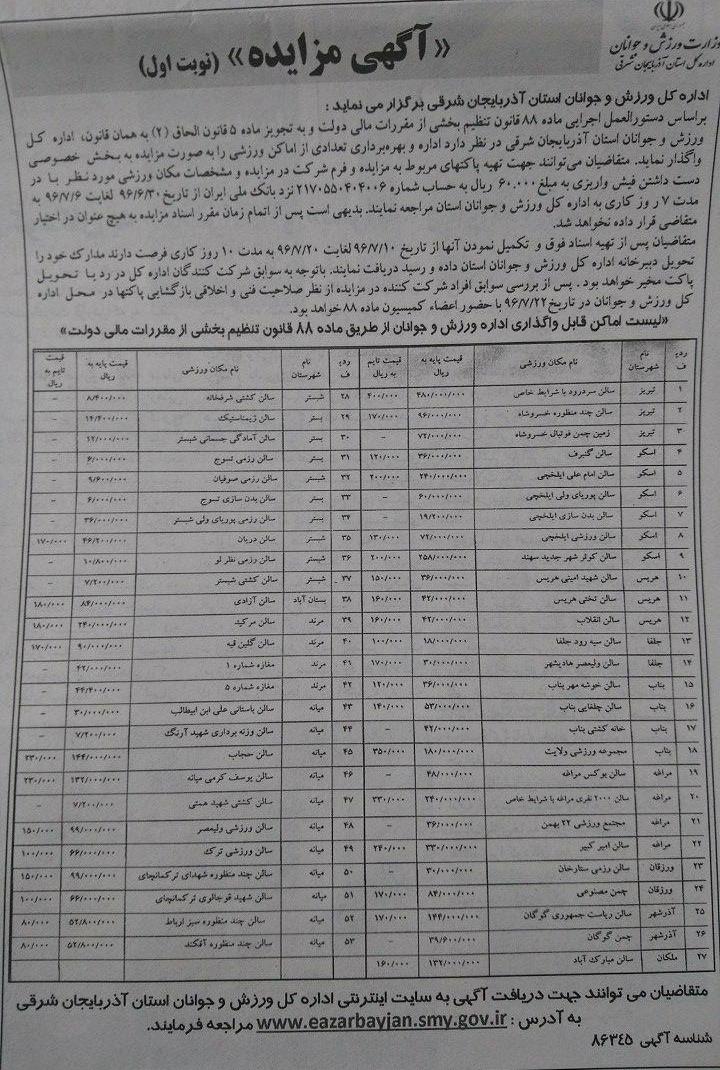 وزارت ورزش و جوانان
اداره کل استان آذربایجان شرقی
«آگهی مزایده» (نوبت اول)
اداره کل ورزش و جوانان استان آذربایجان شرقی برگزار می نماید :
براساس دستورالعمل اجرایی ماده ۸۸ قانون تنظیم بخشی از مقررات مالی دولت و به تجویز ماده ۵ قانون الحاق (۲) به همان قانون، اداره کل
ورزش و جوانان استان آذربایجان شرقی در نظر دارد اداره و بهره‌برداری تعدادی از اماکن ورزشی را به صورت مزایده به بخش خصوصی
واگذار نماید. متقاضیان می‌توانند جهت تهیه پاکتهای مربوط به مزایده و فرم شرکت در مزایده و مشخصات مکان ورزشی مورد نظر با در
دست داشتن فیش واریزی به مبلغ ۶۰.۰۰۰ ریال به حساب شماره ۲۱۷۰۵۵۰۴۰۴۰۰۶ نزد بانک ملی ایران از تاریخ ۹۶/۶/۳۰ لغایت ۹۶/۷/۶ به
مدت ۷ روز کاری به اداره کل ورزش و جوانان استان مراجعه نمایند. بدیهی است پس از اتمام زمان مقرر اسناد مزایده به هیچ عنوان در اختیار
متقاضی قرار داده نخواهد شد.
متقاضیان پس از تهیه اسناد فوق و تکمیل نمودن آنها از تاریخ ۹۶/۷/۱۰ لغایت ۹۶/۷/۲۰ به مدت ۱۰ روز کاری فرصت دارند مدارک خود را
تحویل دبیرخانه اداره کل ورزش و جوانان استان داده و رسید دریافت نمایند. باتوجه به سوابق شرکت کنندگان اداره کل در رد یا تحویل
پاکت مخیر خواهد بود . پس از بررسی سوابق افراد شرکت کننده در مزایده از نظر صلاحیت فنی و اخلاقی بازگشایی پاکتها در محل اداره
کل ورزش و جوانان در تاریخ ۹۶/۷/۲۲ با حضور اعضاء کمیسیون ماده ۸۸ خواهد بود.
«لیست اماکن قابل واگذاری اداره ورزش و جوانان از طریق ماده ۸۸ قانون تنظیم بخشی از مقررات مالی دولت»
ردیف نام شهرستان نام مکان ورزشی قیمت پایه به ریال قیمت تایم به ریال ردیف نام شهرستان نام مکان ورزشی قیمت پایه به ریال قیمت تایم به ریال
۱ تبریز سالن سردرود با شرایط خاص ۴۸۰/۰۰۰/۰۰۰ ۴۰۰/۰۰۰ ۲۸ شبستر سالن کشتی شرفخانه ۸/۴۰۰/۰۰۰ –
۲ تبریز سالن چند منظوره خسروشاه ۹۶/۰۰۰/۰۰۰ ۱۷۰/۰۰۰ ۲۹ بستر سالن ژیمناستیک ۱۴/۴۰۰/۰۰۰ –
۳ تبریز زمین چمن فوتبال خسروشاه ۷۲/۰۰۰/۰۰۰ – ۳۰ بستر سالن آمادگی جسمانی شبستر ۱۲/۰۰۰/۰۰۰ –
۴ اسکو سالن گنبرف ۳۶/۰۰۰/۰۰۰ ۱۲۰/۰۰۰ ۳۱ بستر سالن رزمی تسوج ۶/۰۰۰/۰۰۰ –
۵ اسکو سالن امام علی ایلخچی ۲۴۰/۰۰۰/۰۰۰ ۲۰۰/۰۰۰ ۳۲ شبستر سالن رزمی صوفیان ۹/۶۰۰/۰۰۰ –
۶ اسکو سالن پوریای ولی ایلخچی ۶۰/۰۰۰/۰۰۰ – ۳۳ بستر سالن بدن سازی تسوج ۶/۰۰۰/۰۰۰ –
۷ اسکو سالن بدن سازی ایلخچی ۱۹/۲۰۰/۰۰۰ – ۳۴ بستر سالن رزمی پوریای ولی شبستر ۳۶/۰۰۰/۰۰۰ –
۸ اسکو سالن ورزشی ایلخچی ۷۲/۰۰۰/۰۰۰ ۱۳۰/۰۰۰ ۳۵ شبستر سالن دریان ۴۶/۲۰۰/۰۰۰ ۱۷۰/۰۰۰
۹ اسکو سالن کوثر شهر جدید سهند ۲۵۸/۰۰۰/۰۰۰ ۲۰۰/۰۰۰ ۳۶ شبستر سالن رزمی نظر لو ۱۰/۸۰۰/۰۰۰ –
۱۰ هریس سالن شهید امینی هریس ۳۶/۰۰۰/۰۰۰ ۱۵۰/۰۰۰ ۳۷ شبستر سالن کشتی شبستر ۷/۲۰۰/۰۰۰ –
۱۱ هریس سالن تختی هریس ۴۲/۰۰۰/۰۰۰ ۱۶۰/۰۰۰ ۳۸ بستان آباد سالن آزادی ۸۴/۰۰۰/۰۰۰ ۱۸۰/۰۰۰
۱۲ هریس سالن انقلاب ۴۲/۰۰۰/۰۰۰ ۱۶۰/۰۰۰ ۳۹ مرند سالن مرکید ۲۴۰/۰۰۰/۰۰۰ ۱۸۰/۰۰۰
۱۳ جلفا سالن سیه رود جلفا ۱۸/۰۰۰/۰۰۰ ۱۰۰/۰۰۰ ۴۰ مرند سالن گلین قیه ۹۰/۰۰۰/۰۰۰ ۱۷۰/۰۰۰
۱۴ جلفا سالن ولیعصر هادیشهر ۳۰/۰۰۰/۰۰۰ ۱۷۰/۰۰۰ ۴۱ مرند مغازه شماره ۱ ۴۲/۰۰۰/۰۰۰ –
۱۵ بناب سالن خوشه مهر بناب ۳۶/۰۰۰/۰۰۰ ۱۲۰/۰۰۰ ۴۲ مرند مغازه شماره ۵ ۴۴/۴۰۰/۰۰۰ –
۱۶ بناب سالن چلقایی بناب ۵۳/۰۰۰/۰۰۰ ۱۴۰/۰۰۰ ۴۳ میانه سالن باستانی علی ابن ابیطالب ۳۰/۰۰۰/۰۰۰ –
۱۷ بناب خانه کشتی بناب ۴۲/۰۰۰/۰۰۰ – ۴۴ میانه سالن وزنه برداری شهید آرنگ ۷/۲۰۰/۰۰۰ –
۱۸ بناب مجموعه ورزشی ولایت ۱۸۰/۰۰۰/۰۰۰ ۳۵۰/۰۰۰ ۴۵ میانه سالن حجاب ۱۴۴/۰۰۰/۰۰۰ ۲۳۰/۰۰۰
۱۹ مراغه سالن بوکس مراغه ۴۸/۰۰۰/۰۰۰ – ۴۶ میانه سالن یوسف کرمی میانه ۱۳۲/۰۰۰/۰۰۰ ۲۳۰/۰۰۰
۲۰ مراغه سالن ۲۰۰۰ نفری مراغه با شرایط خاص ۲۴۰/۰۰۰/۰۰۰ ۳۳۰/۰۰۰ ۴۷ میانه سالن کشتی شهید همتی ۷/۲۰۰/۰۰۰ –
۲۱ مراغه مجتمع ورزشی ۲۲ بهمن ۳۶/۰۰۰/۰۰۰ – ۴۸ میانه سالن ورزشی ولیعصر ۹۹/۰۰۰/۰۰۰ ۱۵۰/۰۰۰
۲۲ مراغه سالن امیر کبیر ۳۳۰/۰۰۰/۰۰۰ ۲۴۰/۰۰۰ ۴۹ میانه سالن ورزشی ترک ۶۶/۰۰۰/۰۰۰ ۱۰۰/۰۰۰
۲۳ ورزقان سالن رزمی ستارخان ۳۰/۰۰۰/۰۰۰ – ۵۰ میانه سالن چند منظوره شهدای ترکمانچای ۹۹/۰۰۰/۰۰۰ ۱۵۰/۰۰۰
۲۴ ورزقان چمن مصنوعی ۸۴/۰۰۰/۰۰۰ ۱۷۰/۰۰۰ ۵۱ میانه سالن شهید قوجالوی ترکمانچای ۶۶/۰۰۰/۰۰۰ ۱۰۰/۰۰۰
۲۵ آذرشهر سالن ریاست جمهوری گوگان ۱۴۴/۰۰۰/۰۰۰ ۱۷۰/۰۰۰ ۵۲ میانه سالن چند منظوره سبز ارباط ۵۲/۸۰۰/۰۰۰ ۸۰/۰۰۰
۲۶ آذرشهر چمن گوگان ۳۹/۶۰۰/۰۰۰ – ۵۳ میانه سالن چند منظوره آقکند ۵۲/۸۰۰/۰۰۰ ۸۰/۰۰۰
۲۷ ملکان سالن مبارک آباد ۱۳۲/۰۰۰/۰۰۰ ۱۶۰/۰۰۰
متقاضیان می توانند جهت دریافت آگهی به سایت اینترنتی اداره کل ورزش و جوانان استان آذربایجان شرقی
به آدرس : www.eazarbayjan.smy.gov.ir مراجعه فرمایند.
شناسه آگهی ۸۶۳۴۵